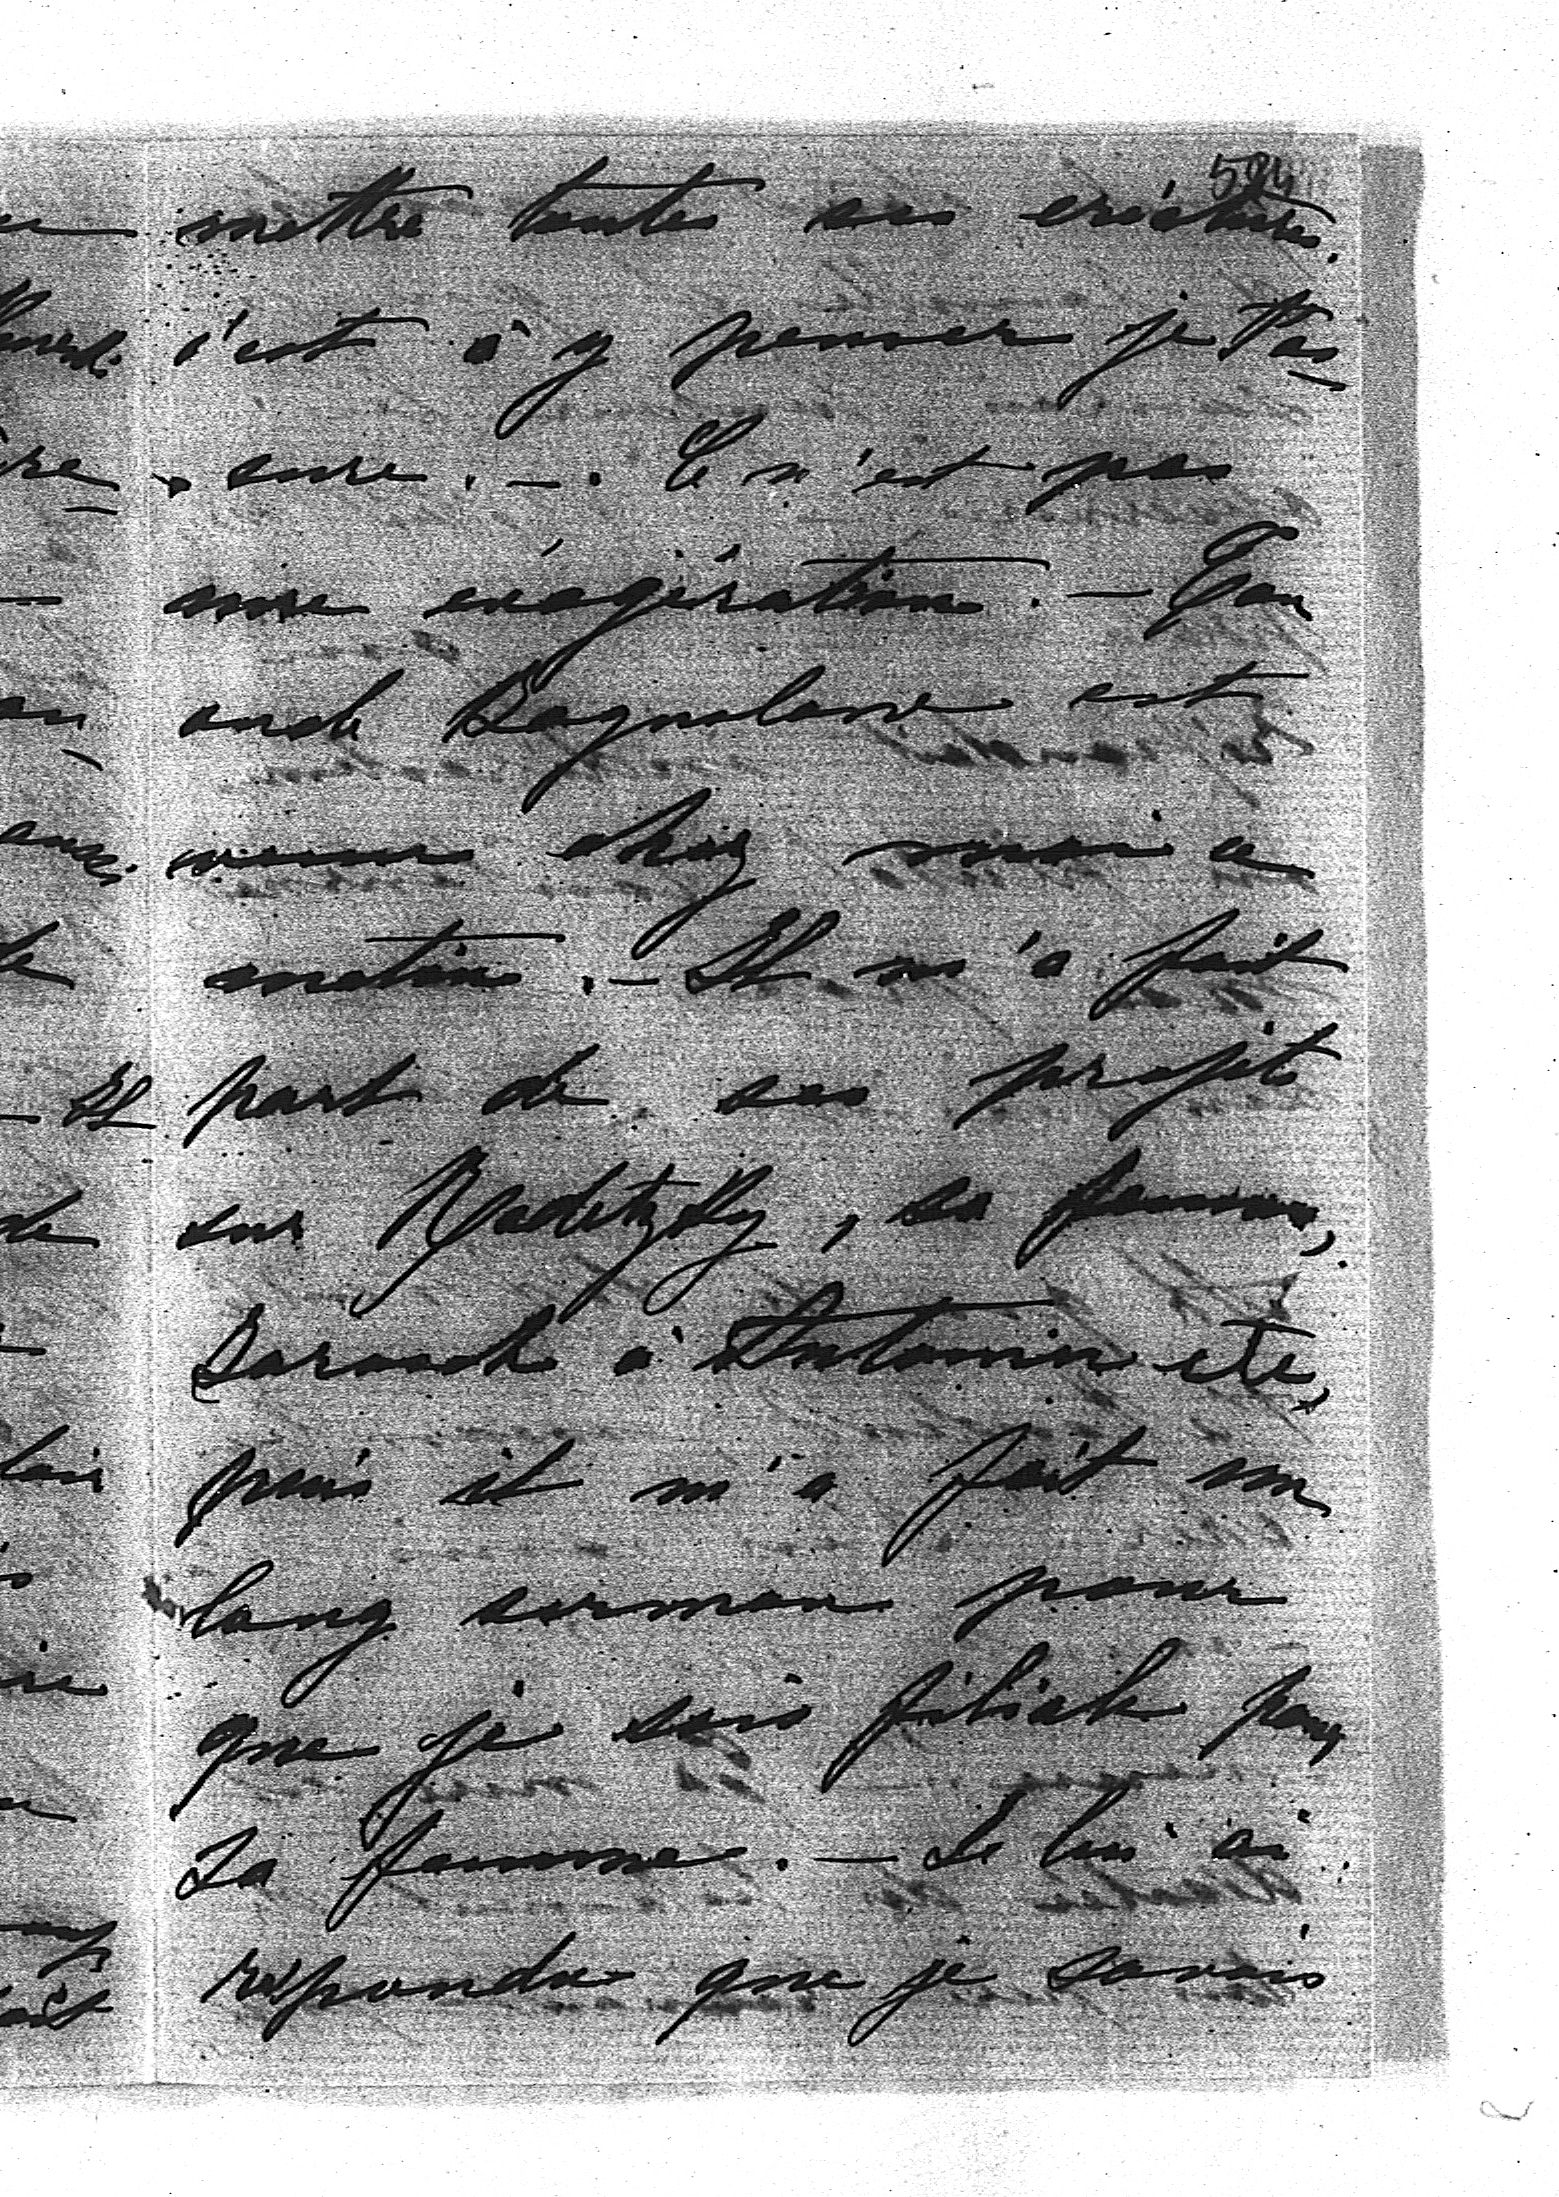 584
mettre toutes ses créatures.
c'est à y penser je t'as-
sure. -. Ce n'est pas
une exagération. - Ton
oncle Bagnolane est
venu chez moi ce
matin. - Il m'a fait
part de ses projets
sur Radetzky, sa femme,
Baranok à Antonin etc,
puis il m'a fait un
long sermon pour
que je sois filiale pour
sa femme. - Je lui ai
répondu que je savais